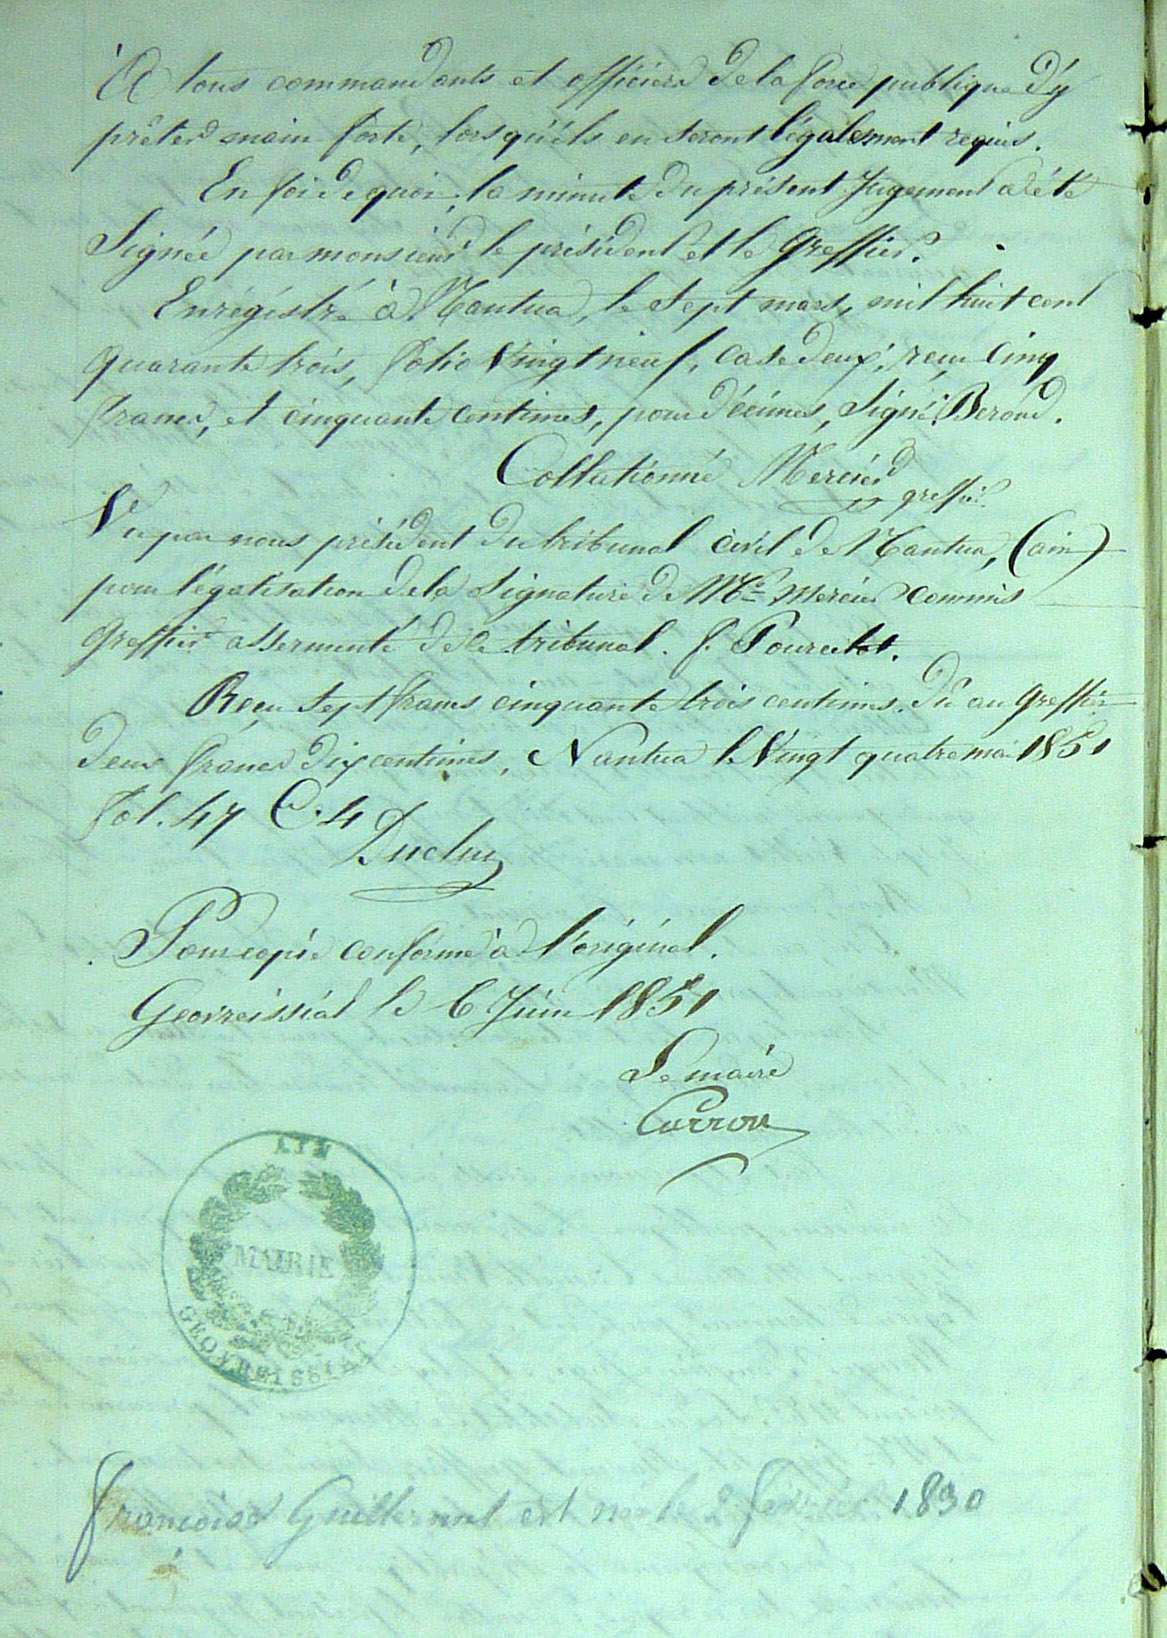 A tous commandants et officiers de la force publique d'y
prêter main forte, lorsqu'ils en seront légalement requis.
En foi de quoi, la minute du présent Jugement a été
Signée par monsieur le président et le Greffier.
Enrégistré à Nantua, le Sept mars, mil huit cent
quarante trois, folio Vingt neuf, case deux, reçu Cinq
francs, et cinquante Centimes, pour décimes, Signé: Beroud.
Collationné Mercier greffier
Vu par nous président du tribunal civil de Nantua, (ain)
pour légalisation de la Signature de Me Mercier commis
Greffier assermenté de ce tribunal. f. Pourcelot.
Reçu Sept francs cinquante trois centimes. Dû au Greffier
deux francs dix centimes, Nantua le Vingt quatre mai 1851
fol. 47 C. 4
Pour copie conforme à l'original.
Geovreissiat le 6 Juin 1851
Le maire
Carron
AIN
MAIRIE
GEOVREISSIAT
françoise Guillermet est née le 2 février 1830